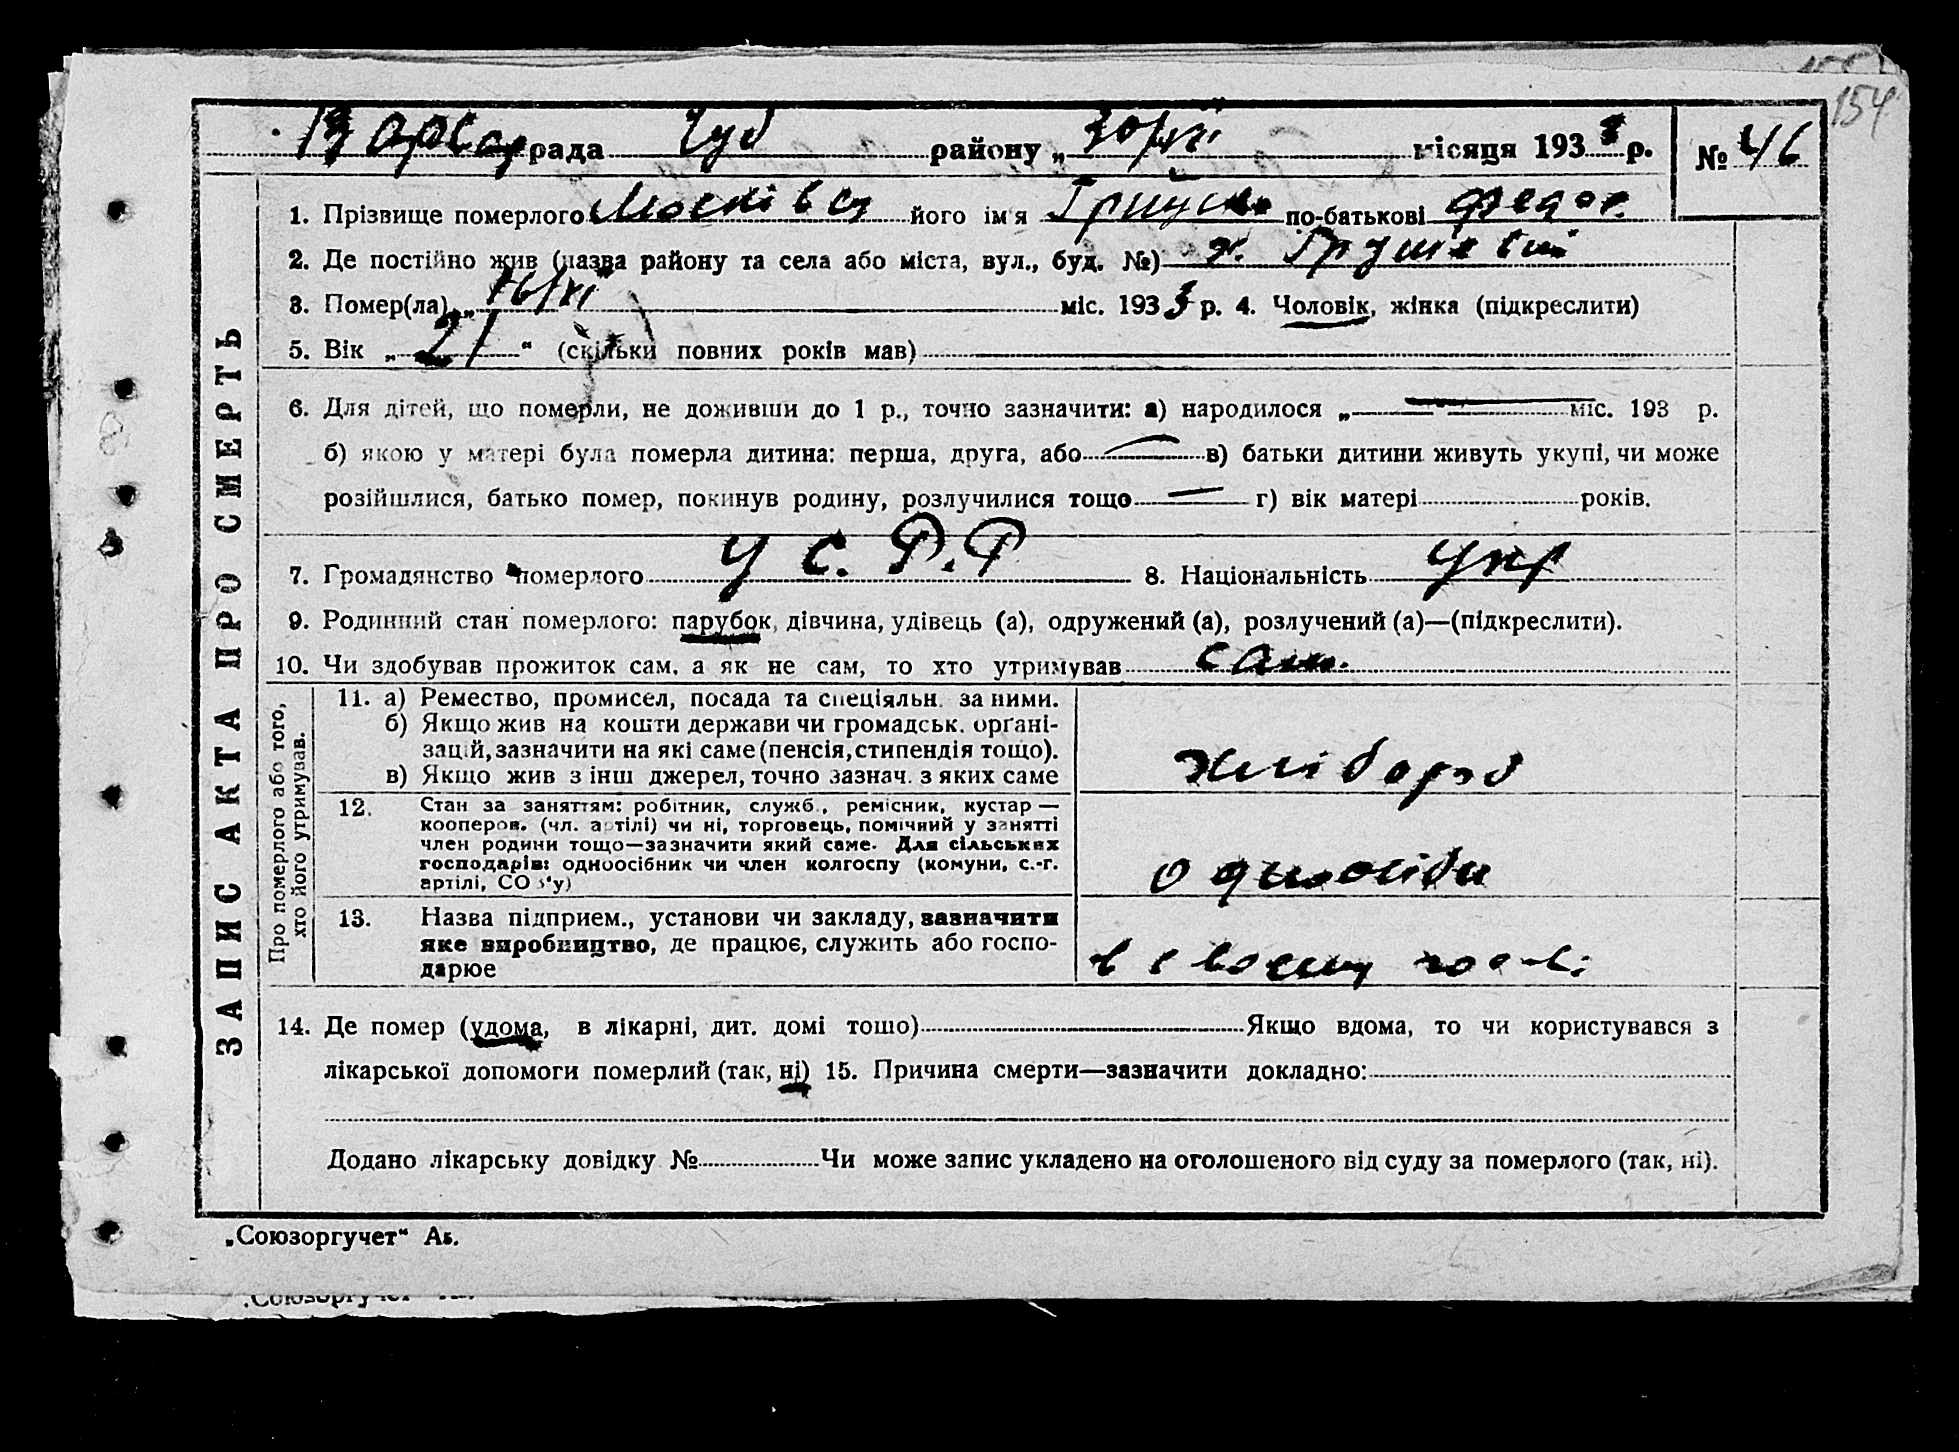 154
рада Чуб району „30/XII місяця 1933 р. № 46
ЗАПИС АКТА ПРО СМЕРТЬ
1. Прізвище померлого його ім'я Грицько по-батькові Федор.
2. Де постійно жив (назва району та села або міста, вул., буд. №) х.
3. Помер(ла) „16/XI міс. 1933 р. 4. Чоловік, жінка (підкреслити)
5. Вік „21“ (скільки повних років мав)
6. Для дітей, що померли, не доживши до 1 р., точно зазначити: а) народилося „ “ міс. 193 р.
б) якою у матері була померла дитина: перша, друга, або в) батьки дитини живуть укупі, чи може
розійшлися, батько помер, покинув родину, розлучилися тощо г) вік матері років.
7. Громадянство померлого У С.Р.Р 8. Національність укр
9. Родинний стан померлого: парубок, дівчина, удівець (а), одружений (а), розлучений (а)—(підкреслити).
10. Чи здобував прожиток сам, а як не сам, то хто утримував сам.
Про померлого або того, хто його утримував.
11. а) Ремество, промисел, посада та спеціяльн. за ними.
б) Якщо жив на кошти держави чи громадськ. орґані-
зацій, зазначити на які саме (пенсія, стипендія тощо).
в) Якщо жив з інш джерел, точно зазнач. з яких саме
хлібороб
12. Стан за заняттям: робітник, служб., ремісник, кустар —
кооперов. (чл. артілі) чи ні, торговець, помічний у занятті
член родини тощо—зазначити який саме. Для сільських
господарів: одноосібник чи член колгоспу (комуни, с.-г.
артілі, СОЗ'у)
одноосібн
13. Назва підприєм., установи чи закладу, зазначити
яке виробництво, де працює, служить або госпо-
дарює
в своєму
14. Де помер (удома, в лікарні, дит. домі тощо) Якщо вдома, то чи користувався з
лікарської допомоги померлий (так, ні) 15. Причина смерти—зазначити докладно:
Додано лікарську довідку № Чи може запис укладено на оголошеного від суду за померлого (так, ні).
„Союзоргучет“
.Союзоргучет